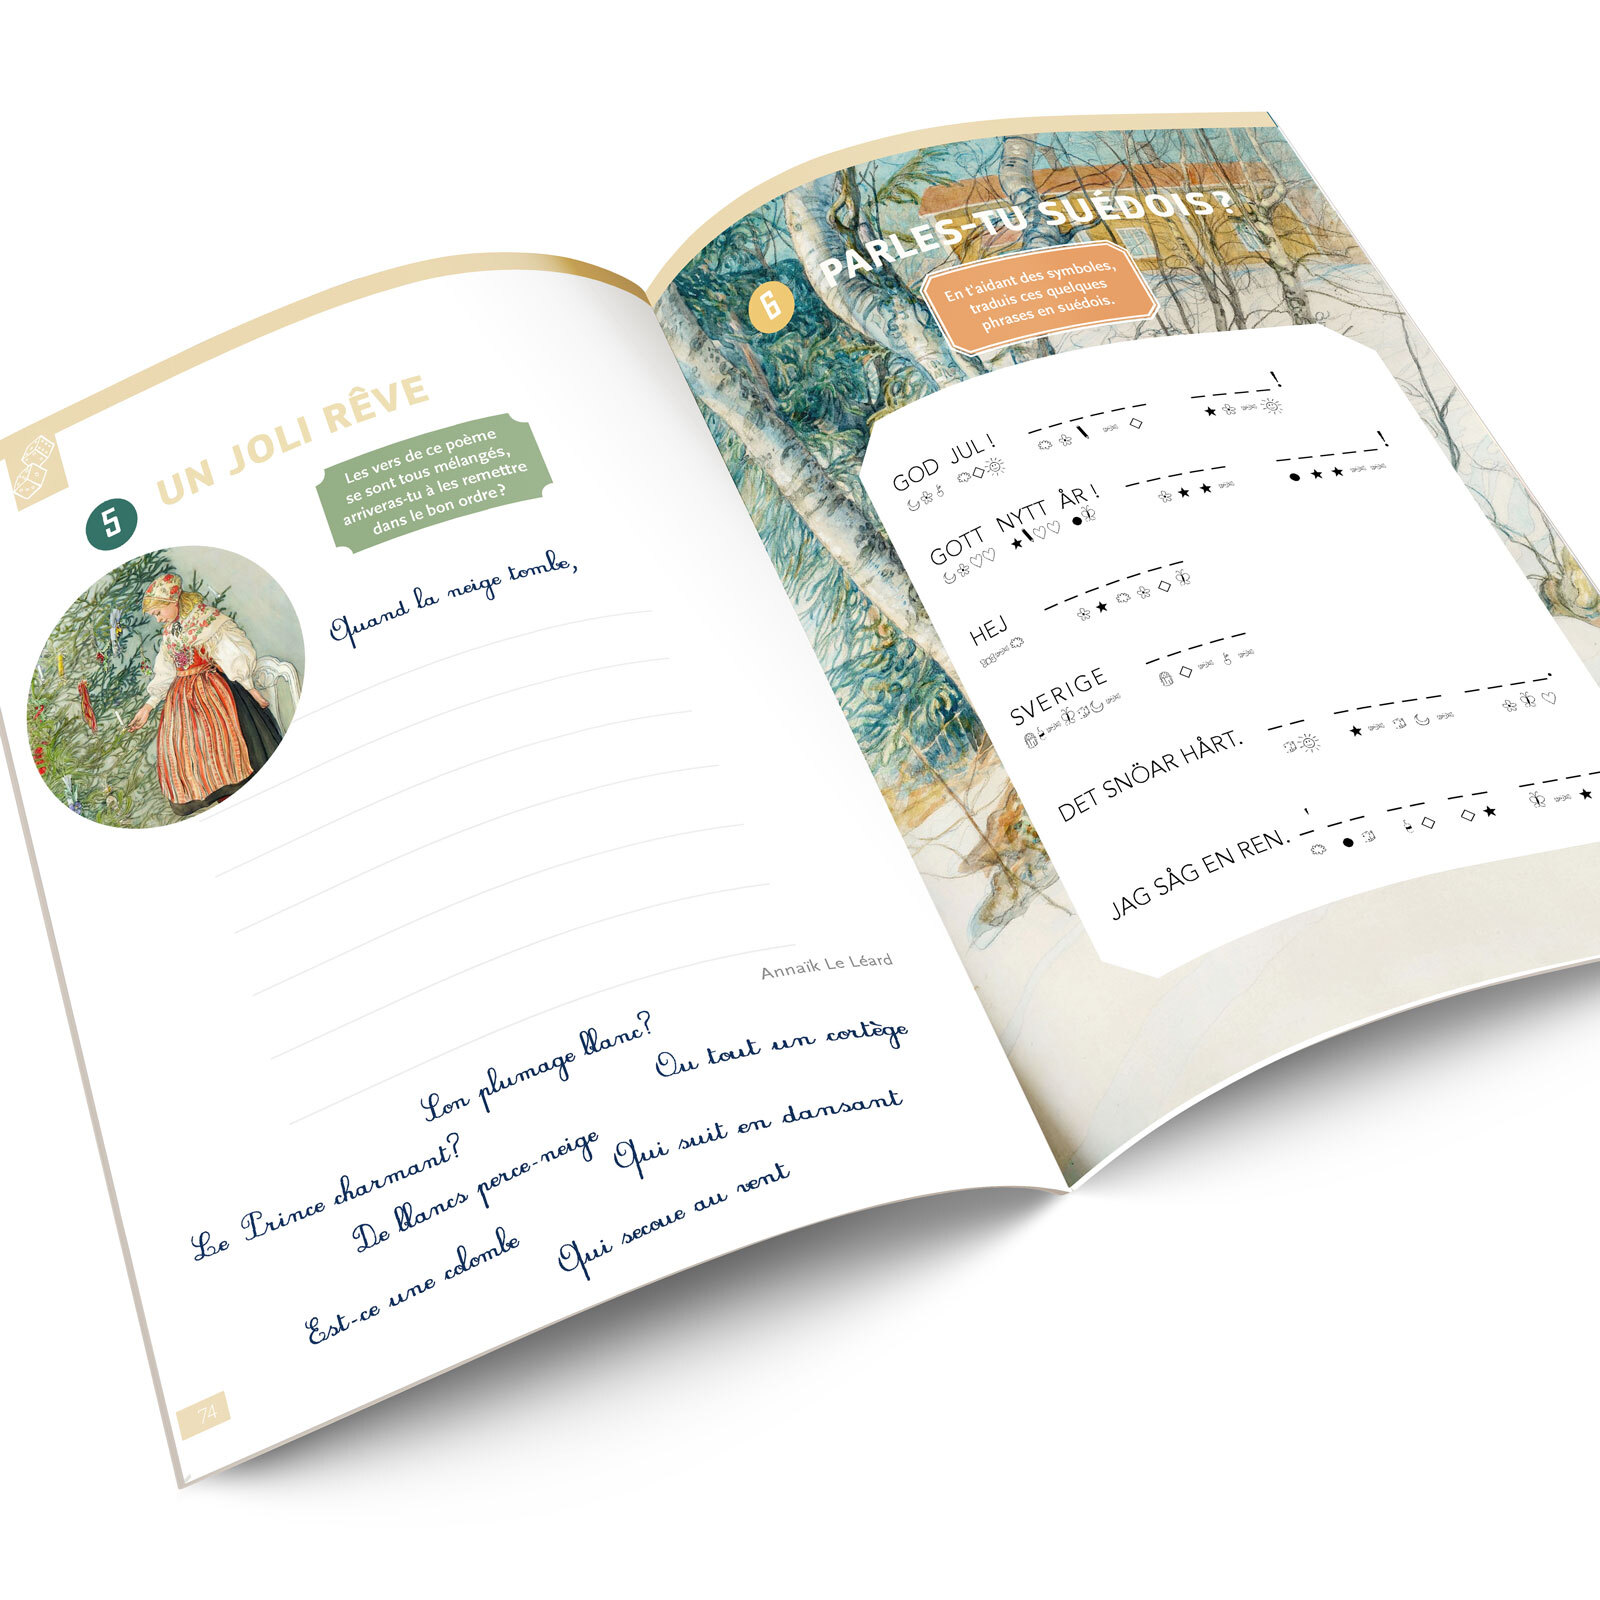 5
UN JOLI RÊVE
Les vers de ce poème
se sont tous mélangés,
arriveras-tu à les remettre
dans le bon ordre ?
Quand la neige tombe,
Annaïk Le Léard
Son plumage blanc ?
Ou tout un cortège
Le Prince charmant ?
De blancs perce-neige
Qui suit en dansant
Est-ce une colombe
Qui secoue au vent
74
6
PARLES-TU SUÉDOIS ?
En t'aidant des symboles,
traduis ces quelques
phrases en suédois.
GOD JUL ! !
GOTT NYTT ÅR ! !
HEJ
SVERIGE
DET SNÖAR HÅRT. .
JAG SÅG EN REN. '